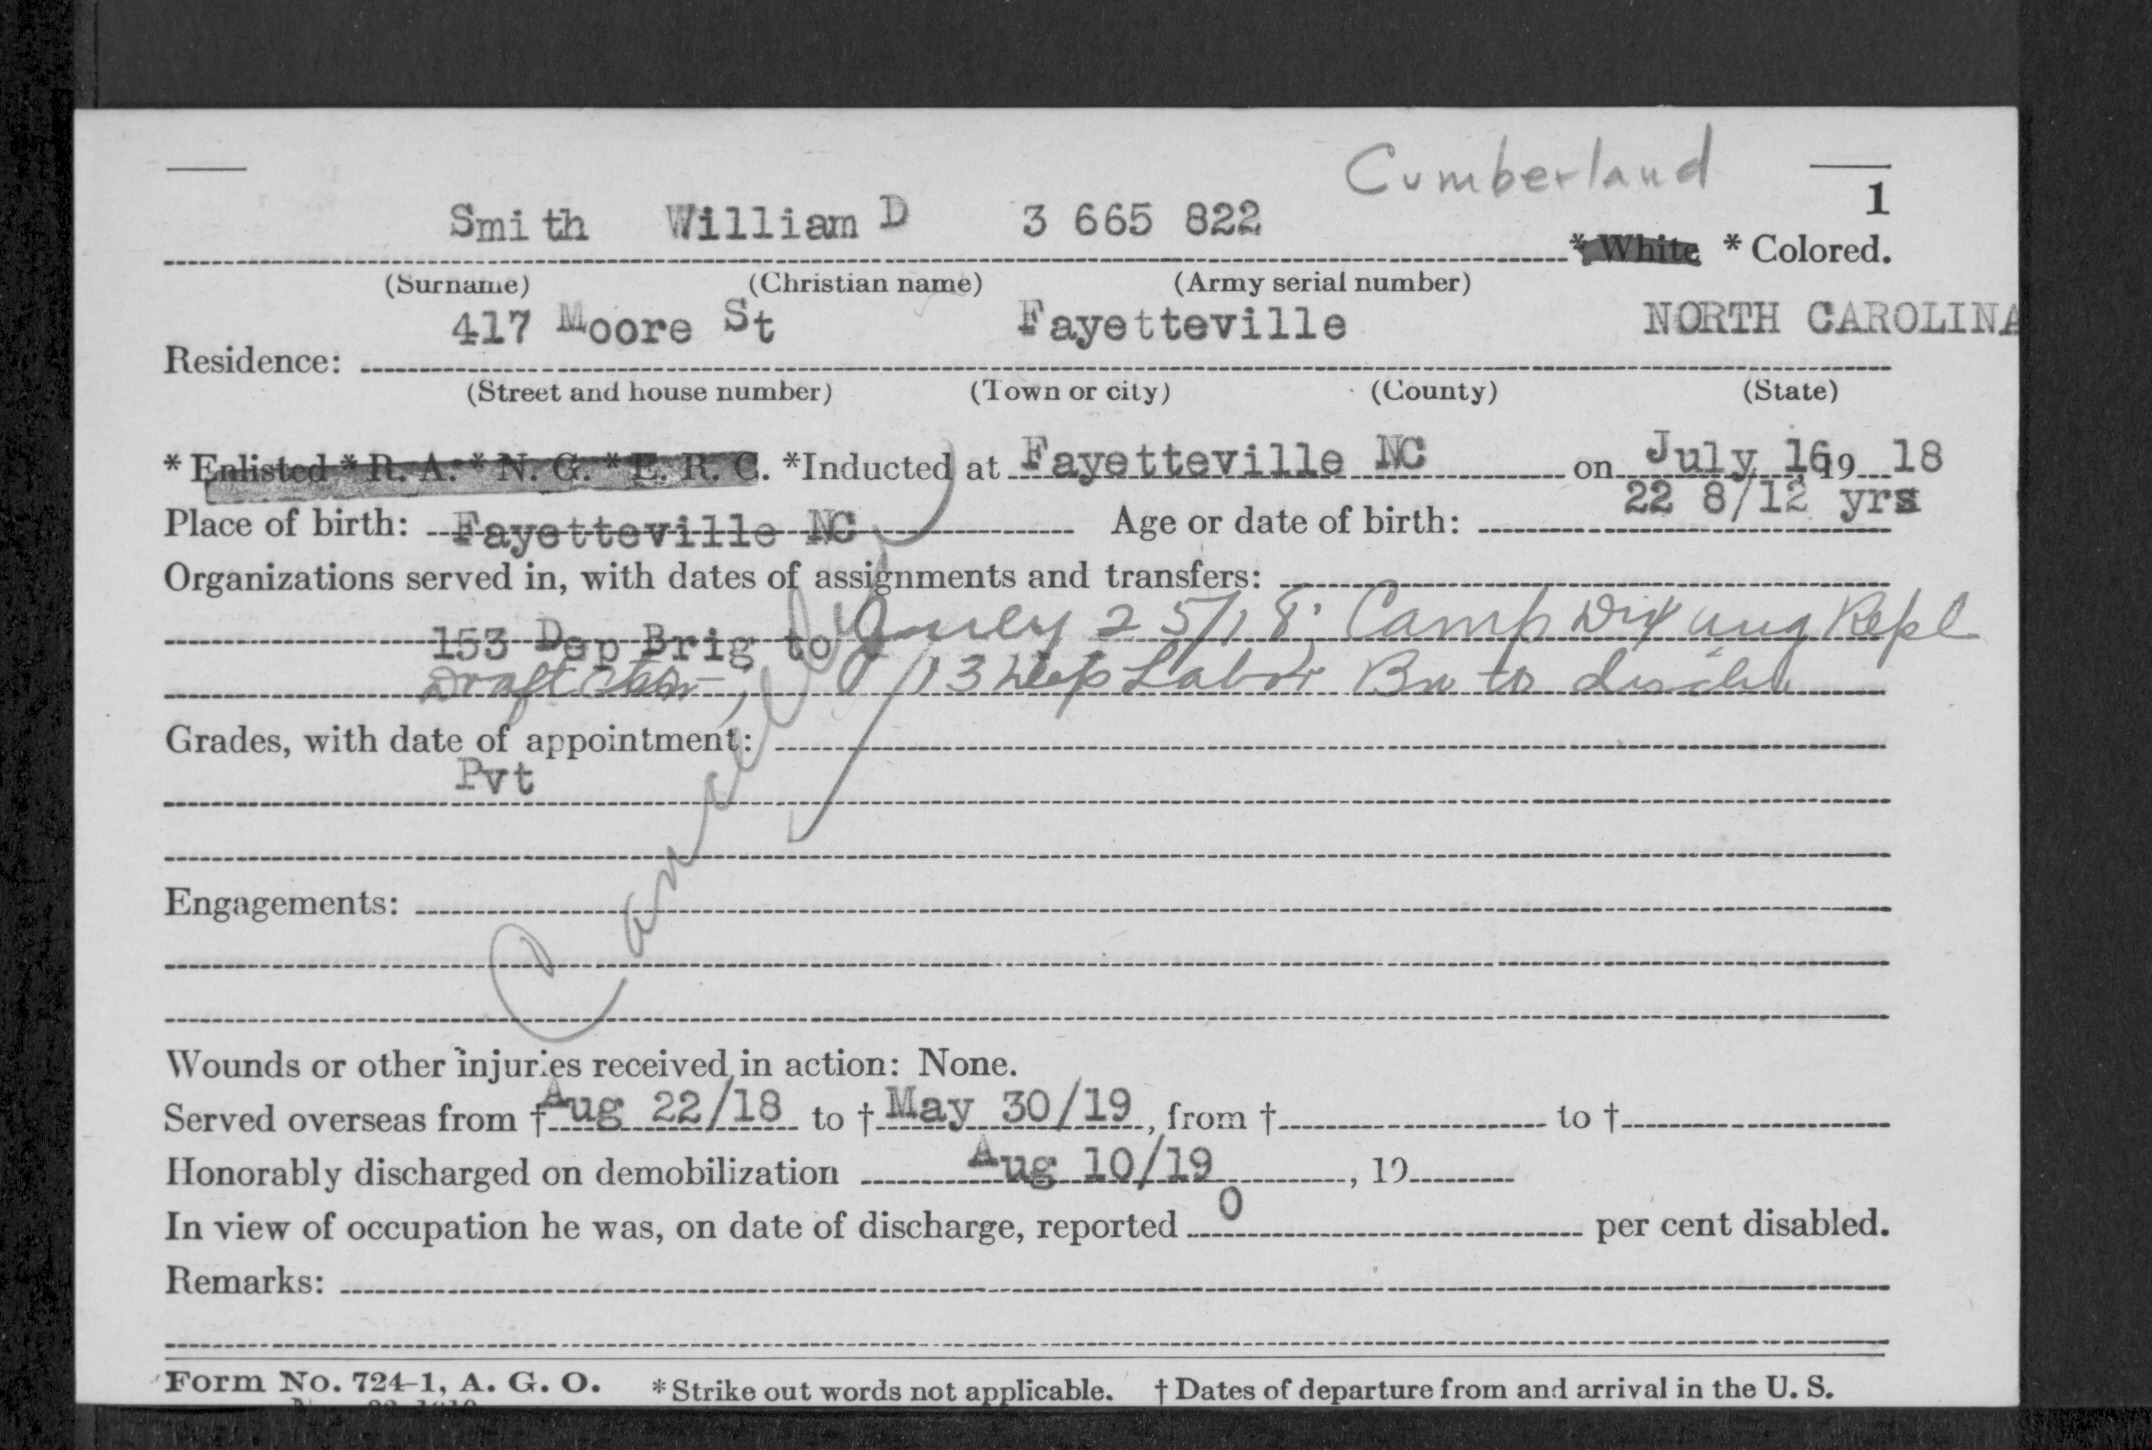 Cumberland
1
Smith William D 3 665 822 * White * Colored.
(Surname) (Christian name) (Army serial number)
417 Moore St Fayetteville NORTH CAROLINA
Residence:
(Street and house number) (Town or city) (County) (State)
* Enlisted * R. A. * N. G. * E. R. C. *Inducted at Fayetteville NC on July 16, 19 18
Place of birth: Fayetteville NC Age or date of birth: 22 8/12 yrs
Organizations served in, with dates of assignments and transfers:
153 Dep Brig to July 25/18; Camp Dix Aug Repl
Draft 13 Labor Bn to disch
Cancelled
Grades, with date of appointment:
Pvt
Engagements:
Wounds or other injuries received in action: None.
Served overseas from † Aug 22/18 to † May 30/19, from † to †
Honorably discharged on demobilization Aug 10/19, 19
In view of occupation he was, on date of discharge, reported 0 per cent disabled.
Remarks:
Form No. 724-1, A. G. O. * Strike out words not applicable. † Dates of departure from and arrival in the U. S.